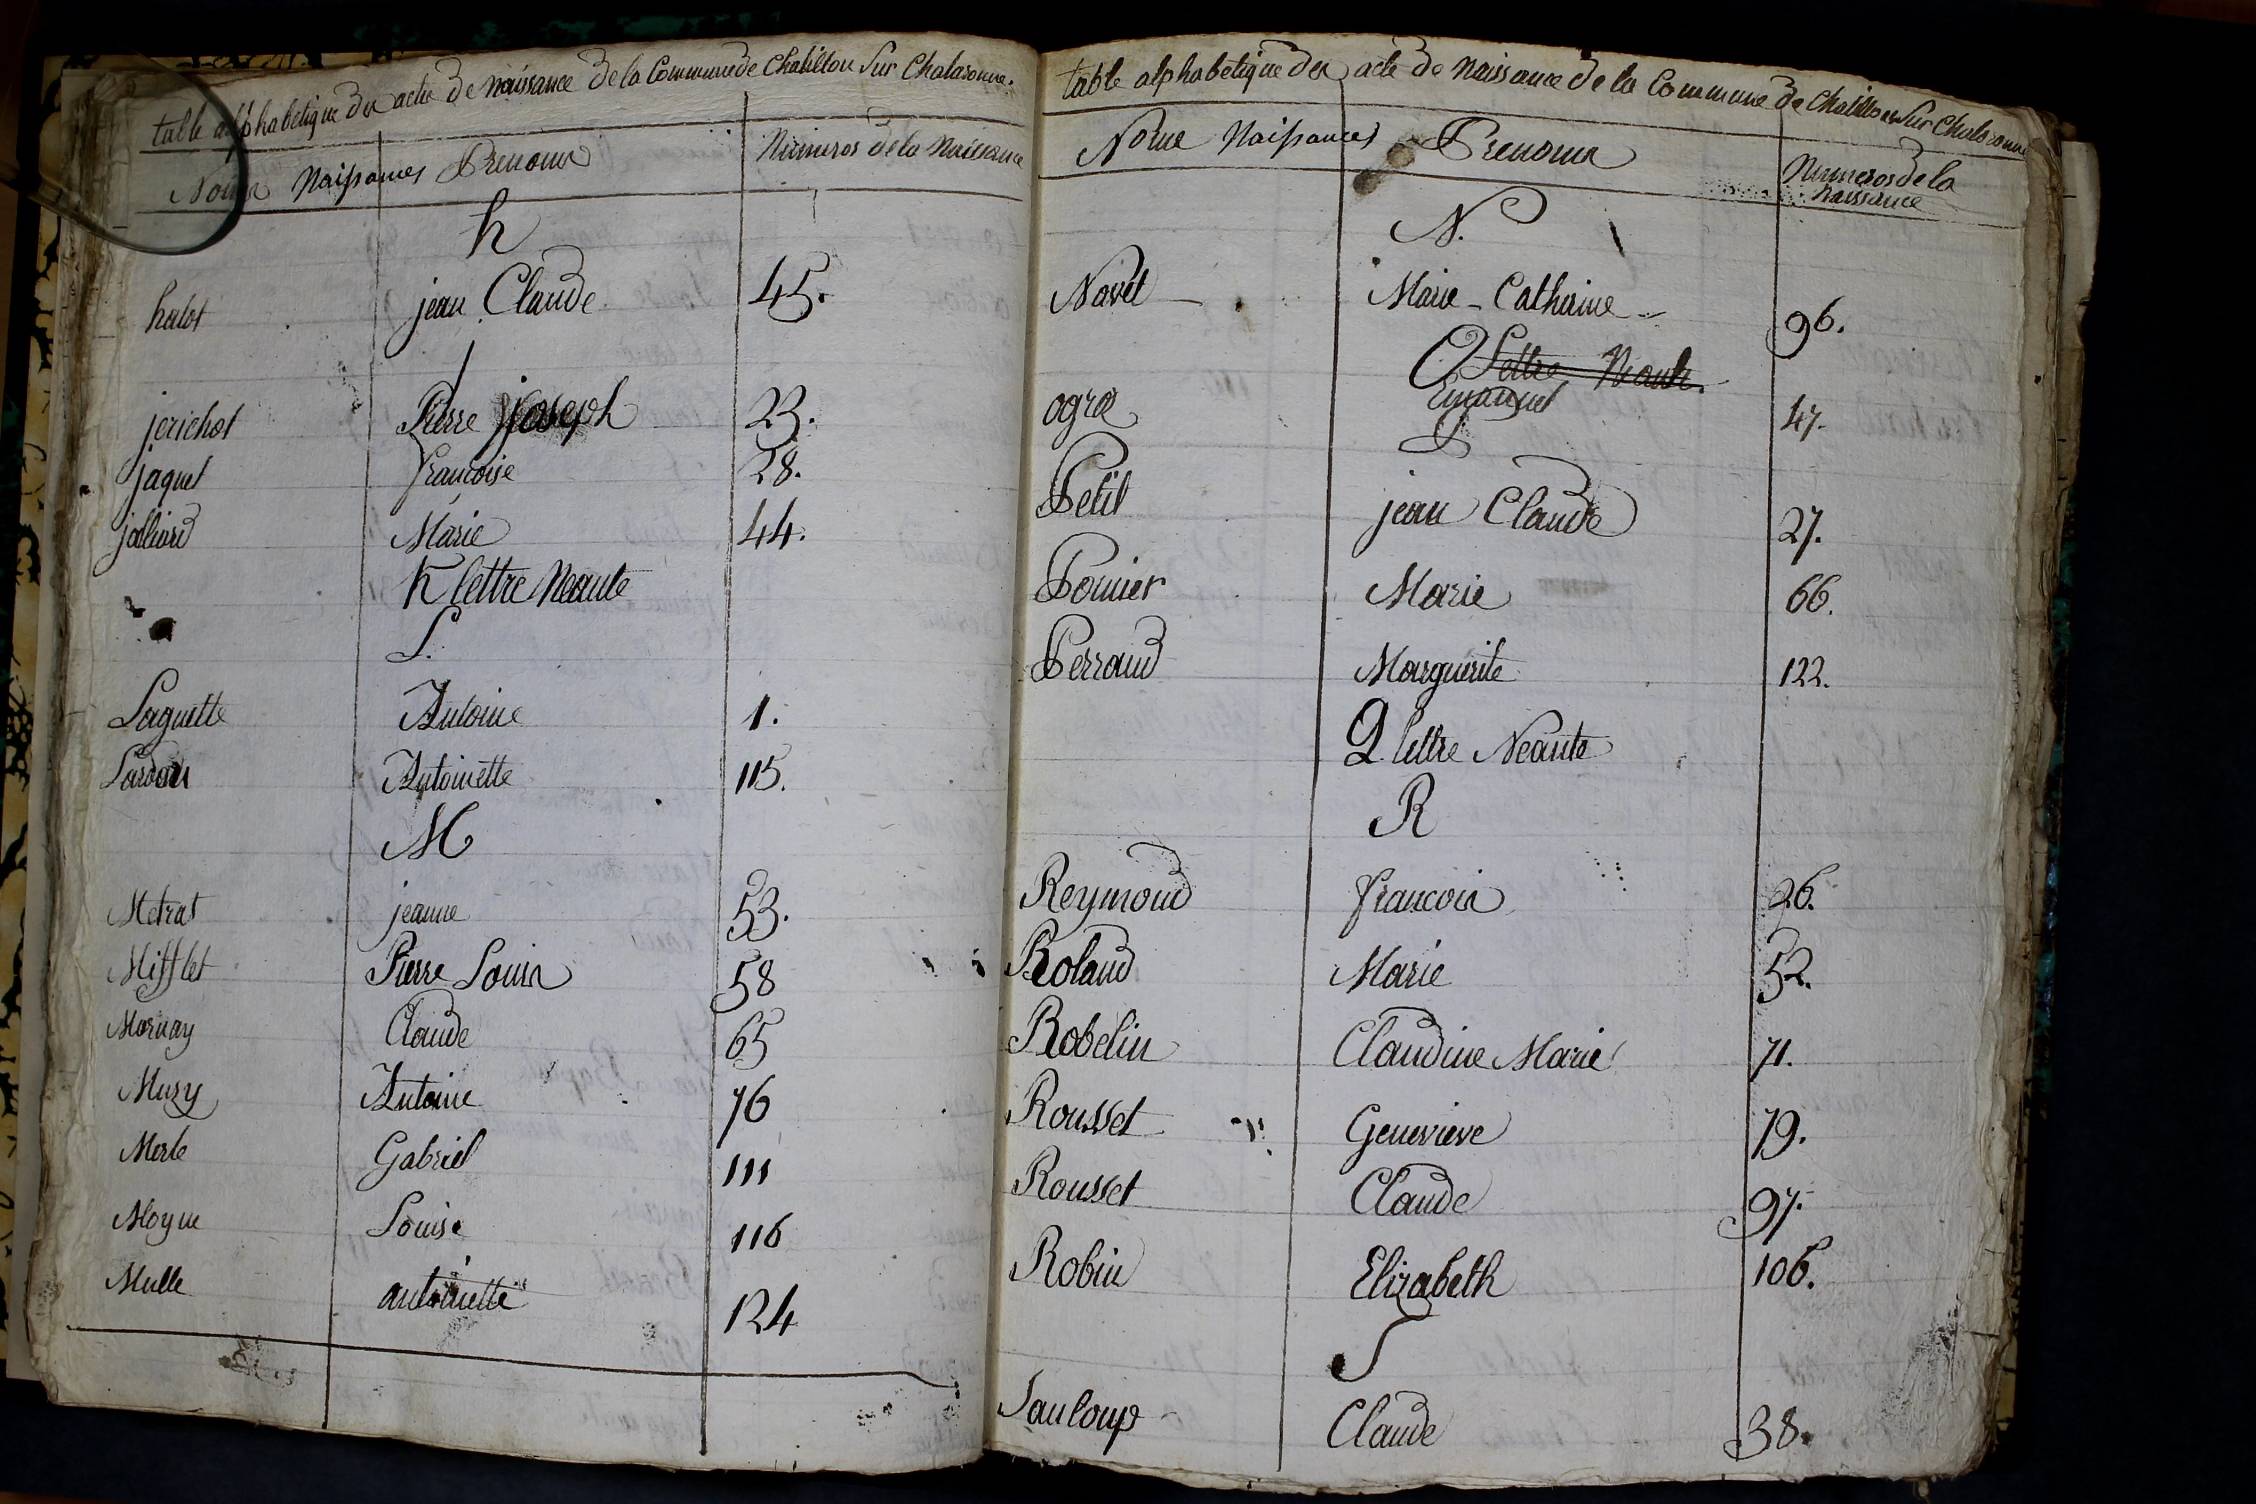 table alphabetique des acte de Naissance de la Commune de Chatillon Sur Chalaronne.
Noms Naissances Prenoms Numeros de la Naissance
h
halot jean Claude 45.
J
jerichot Pierre joseph 23.
jaquet francoise 28.
jolliard Marie 44.
K lettre Neante
L.
Laguette Antoine 1.
Lardon Antoinette 115.
M
Metrat jeanne 53.
Mifflet Pierre Louis 58
Mornay Claude 65
Muzy Antoine 76
Merle Gabriel 111
Moyne Louise 116
Mulle antoinette 124
table alphabetique des acte de Naissance de la Commune de Chatillon Sur Chalaronne
Noms Naissances Prenoms Numeros de la Naissance
N.
Navet Marie - Catherine 96.
O Lettre Neante.
ogra Emanuel 47.
P
Petit jean Claude 27.
Pomier Marie 66.
Perraud Marguerite 122.
Q lettre Neante
R
Reymond francois 26.
Roland Marie 52.
Robelin Claudine Marie 71.
Rousset Genevieve 79.
Rousset Claude 97.
Robin Elizabeth 106.
S
Sauloup Claude 38.